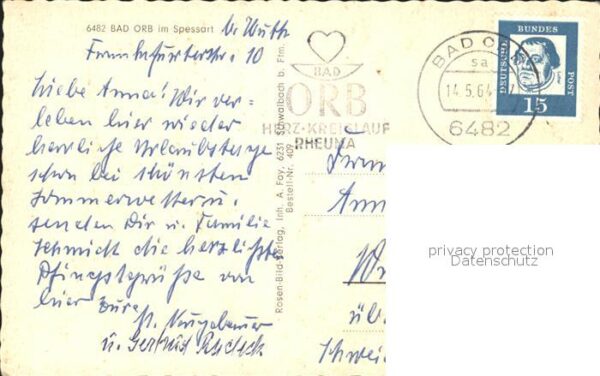 6482 BAD ORB im Spessart
b. Wuth
Frankfurterstr. 10
Liebe Anna! Wir ver-
leben hier wieder
herrliche Urlaubstage
schon bei schönsten
Sommerwetter u.
senden Dir u. Familie
Schmidt die herzlichsten
Pfingstgrüße von
hier Eure
u. Gertrud
Rosen-Bild-Verlag, Inh. A. Fay, 6231 Schwalbach b. Ffm.
Bestell-Nr. 409
BAD
ORB
HERZ·KREISLAUF
RHEUMA
BAD O
sa
14.5.64
6482
DEUTSCHE BUNDESPOST
15
Frau
Ann
üb.
Schwei
privacy protection
Datenschutz